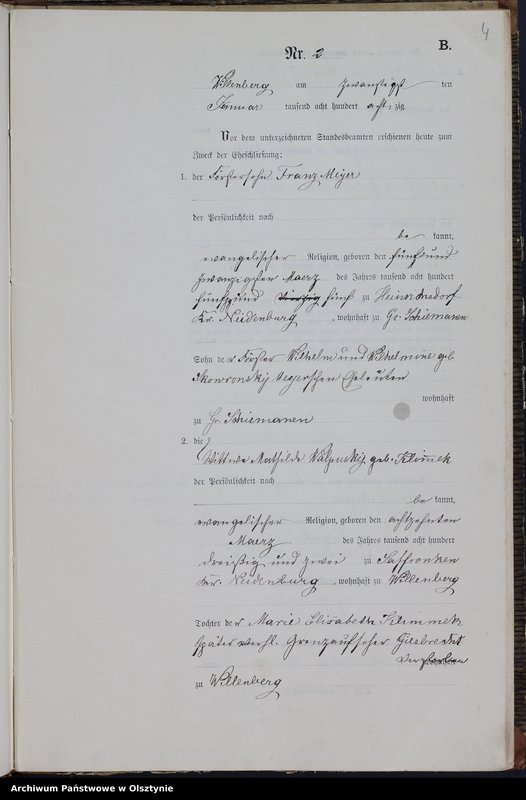 4
B.
Nr. 2
Willenberg am zwanzigst ten
Januar tausend acht hundert acht zig.
Vor dem unterzeichneten Standesbeamten erschienen heute zum
Zweck der Eheschließung:
1. der Förstersohn Franz Meyer
der Persönlichkeit nach
be kannt,
evangelischer Religion, geboren den fünf und
zwanzigsten Maerz des Jahres tausend acht hundert
fünfzig und fünf zu Heinrichsdorf
Kr. Neidenburg, wohnhaft zu Gr. Schiemanen
Sohn der Förster Wilhelm und Wilhelmine geb.
Skowronski Meyerschen Eheleuten
wohnhaft
zu Gr. Schiemanen
2. die
Wittwe Mathilde geb. Klimmek
der Persönlichkeit nach
be kannt,
evangelischer Religion, geboren den achtzehnten
Maerz des Jahres tausend acht hundert
dreißig und zwei zu Saffronken
Kr. Neidenburg, wohnhaft zu Willenberg
Tochter der Marie Elisabeth Klimmek
später verhl. Grenzaufseher Giesbrecht
verstorben
zu Willenberg
Archiwum Państwowe w Olsztynie